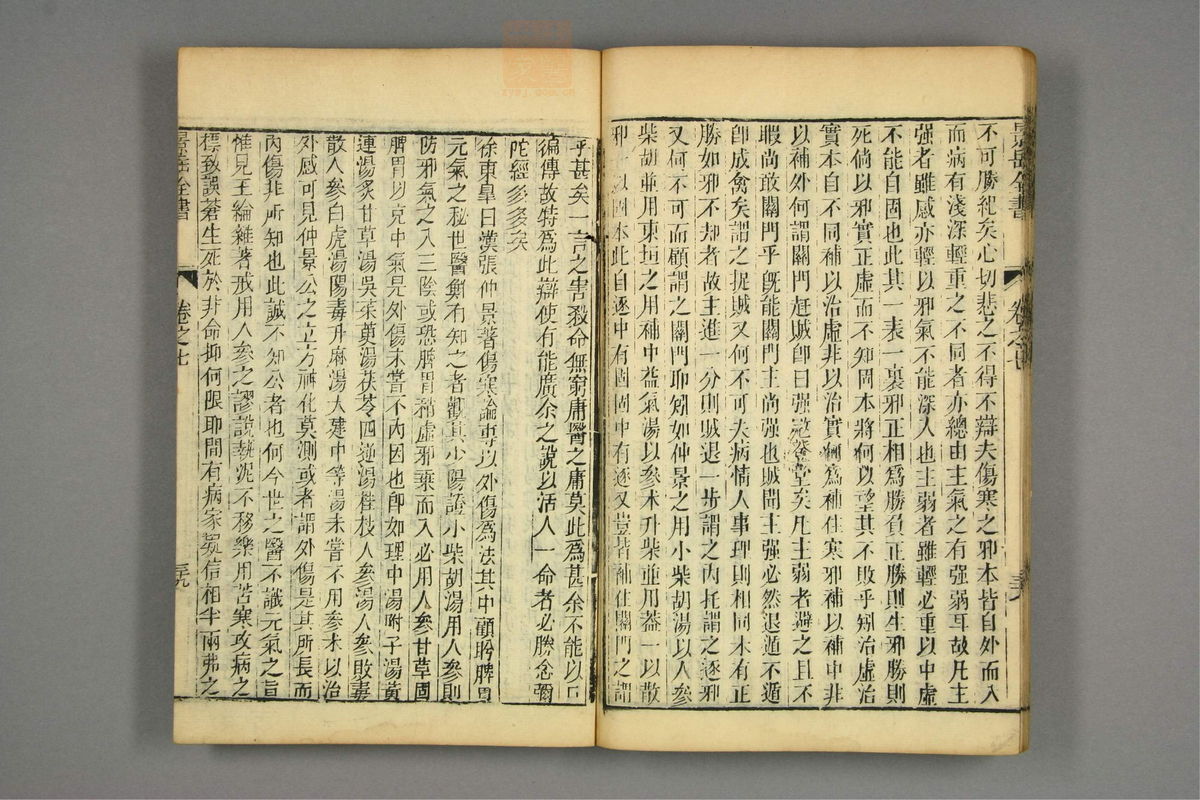 不可勝紀矣心切悲之不得不辯夫傷寒之邪本皆自外而入
而病有淺深輕重之不同者亦總由主氣之有强弱耳故凡主
强者雖感亦輕以邪氣不能深人也主弱者雖輕必重以中虛
不能自固也此其一表一裏邪正相爲勝負正勝則生邪勝則
死倘以邪實正虛而不知固本將何以望其不敗乎矧治虛治
實本自不同補以治虛非以治實何爲補住寒邪補以補中非
以補外何謂關門赶賊即曰强寇登堂矣凡主弱者避之且不
暇尚敢關門乎既能關門主尚强也賊聞主强必然退遁不遁
卽成禽矣謂之捉賊又何不可夫病情人事理則相同未有正
勝如邪不却者故主進一分則賊退一步謂之內托謂之逐邪
又何不可而顧謂之關門耶矧如仲景之用小柴胡湯以人參
柴胡並用東垣之用補中益氣湯以參术升柴並用蓋一以散
邪一以固本此自逐中有固固中有逐又豈皆補住關門之謂
景岳全書
卷之七
乎甚矣一言之害殺命無窮庸醫之庸莫此爲甚余不能以口
徧傳故特爲此辯使有能廣余之說以活人一命者必勝念彌
陀經多多矣
徐東臯曰漢張仲景著傷寒論專以外傷爲法其中顧盻脾胃
元氣之秘世醫鮮有知之者觀其少陽證小柴胡湯用人參則
防邪氣之入三陰或恐脾胃稍虛邪乘而入必用人參甘草固
脾胃以充中氣是外傷未嘗不內因也卽如理中湯附子湯黃
連湯炙甘草湯吳茱萸湯茯苓四逆湯桂枝人參湯人參敗毒
散人參白虎湯陽毒升麻湯大建中等湯未嘗不用參术以治
外感可見仲景公之立方神化莫測或者謂外傷是其所長而
內傷非所知也此誠不知公者也何今世之醫不識元氣之旨
惟見王綸雜著戒用人參之謬說執泥不移樂用苦寒攻病之
標致誤蒼生死於非命抑何限耶間有病家疑信相半兩弗之
景岳全書
卷之七
三九